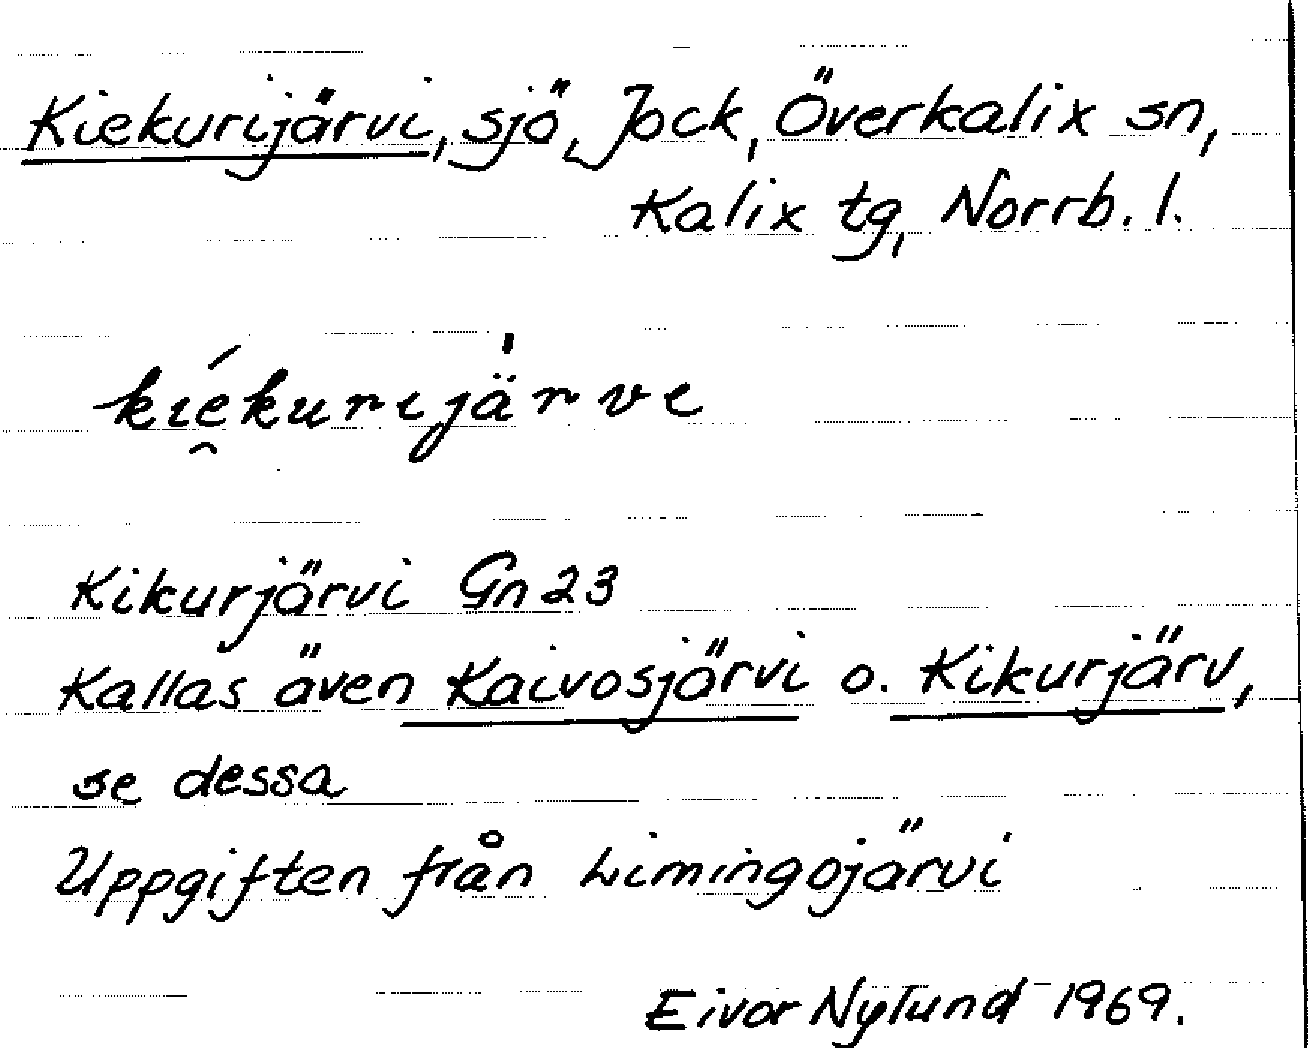 Kiekurijärvi, sjö, Jock, Överkalix sn,
Kalix tg, Norrb. l.
kı̯ékurıjä̀rvı
Kikurjärvi Gn 23
Kallas även Kaivosjärvi o. Kikurjärv,
se dessa
Uppgiften från Limingojärvi
Eivor Nylund 1969.